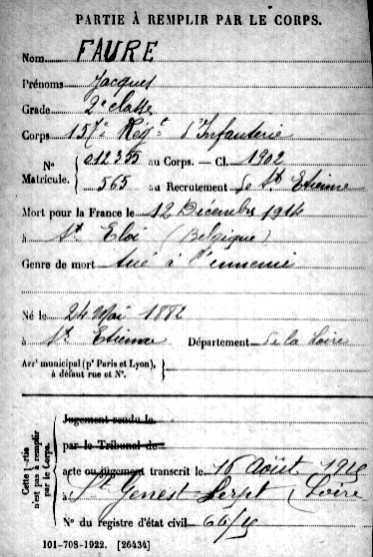 PARTIE À REMPLIR PAR LE CORPS.
Nom FAURE
Prénoms Jacques
Grade 2e classe
Corps 157e Regt d'Infanterie
No Matricule. { 012355 au Corps. — Cl. 1902
565 au Recrutement de St Etienne
Mort pour la France le 12 Décembre 1914
à St Eloi (Belgique)
Genre de mort tué à l'ennemi
Né le 24 Mai 1882
à St Etienne Département de la Loire
Arrt municipal (pr Paris et Lyon), à défaut rue et No.
Cette partie n'est pas à remplir par le Corps.
Jugement rendu le
par le Tribunal de
acte ou jugement transcrit le 16 Août 1915
à St Genest Lerpt (Loire
No du registre d'état civil 66/15
101-708-1922. [26434]